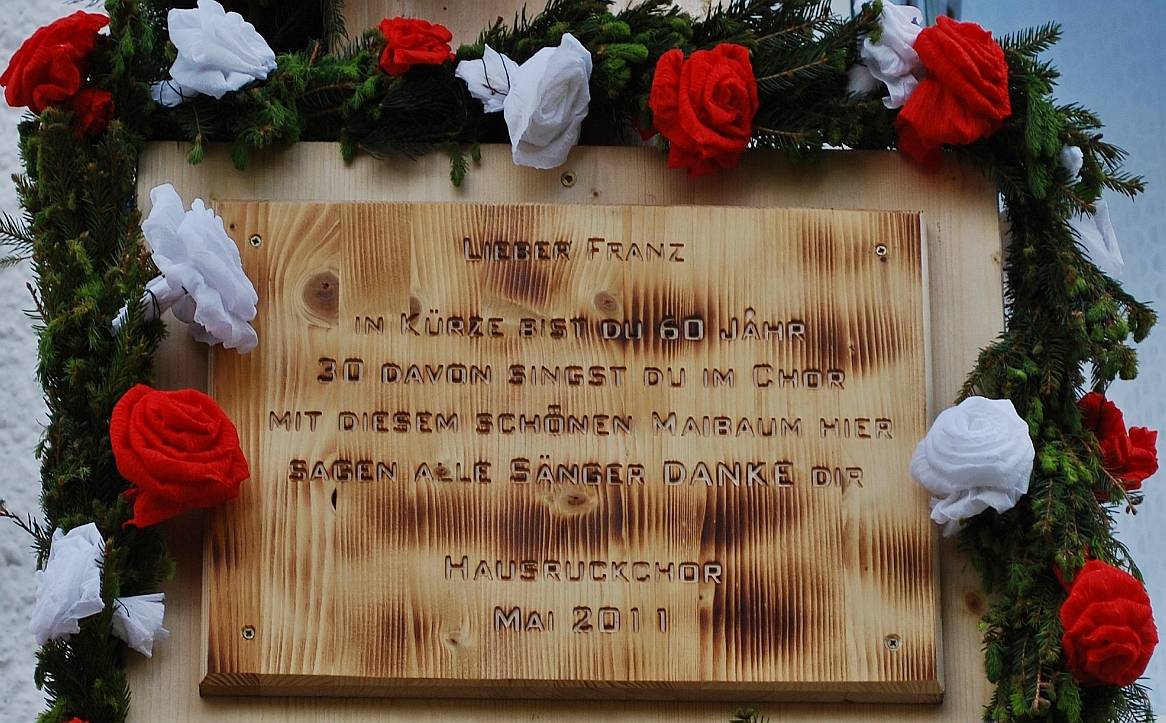 LIEBER FRANZ
IN KÜRZE BIST DU 60 JÅHR
30 DAVON SINGST DU IM CHOR
MIT DIESEM SCHÖNEN MAIBAUM HIER
SAGEN ALLE SÄNGER DANKE DIR
HAUSRUCKCHOR
MAI 2011